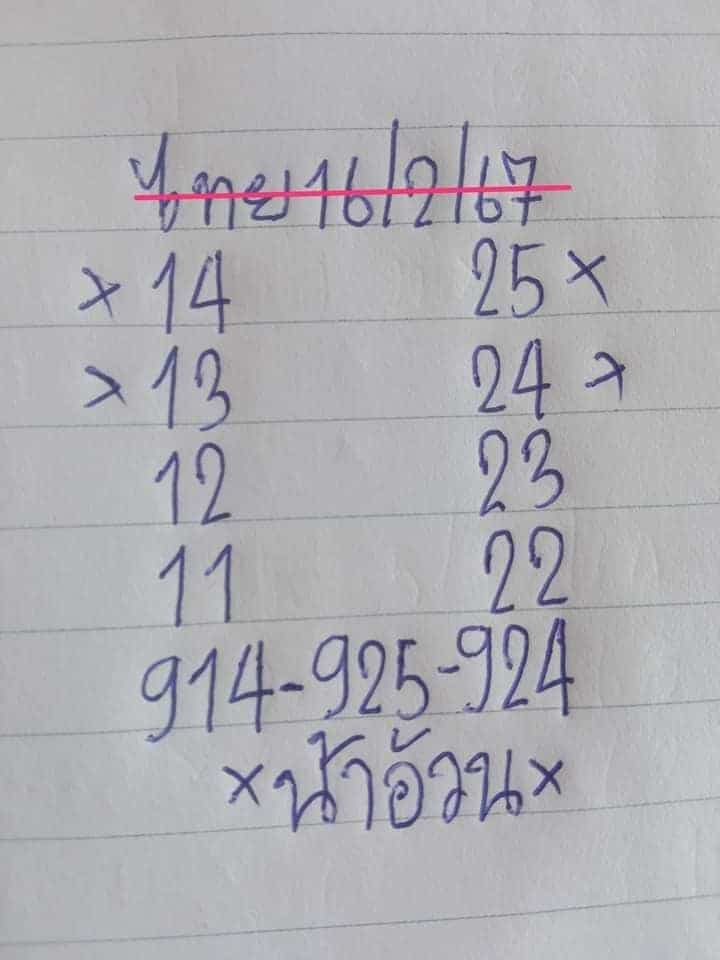 ไทย 16/2/67
× 14 25 ×
× 13 24 ×
12 23
11 22
914-925-924
×น้าอ้วน×